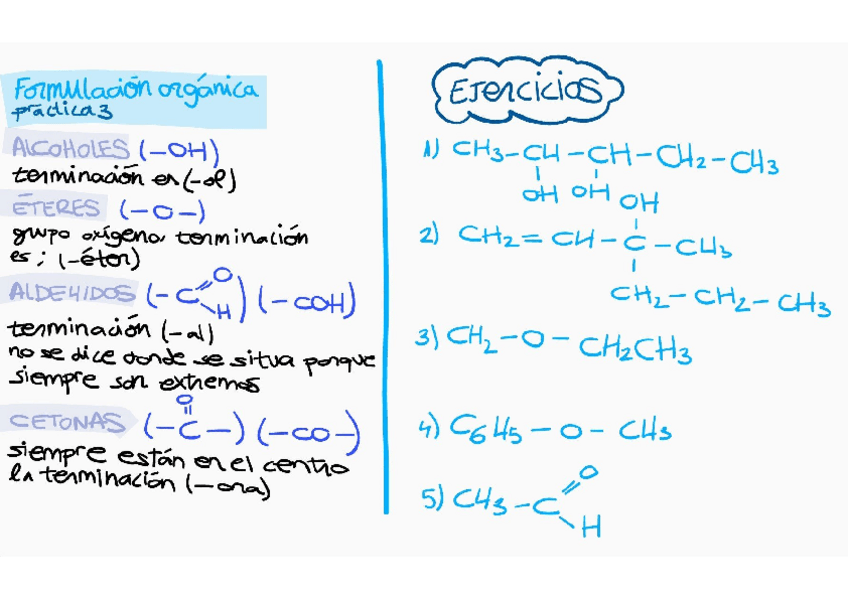 Formulación orgánica
práctica 3
ALCOHOLES (-OH)
terminación es (-ol)
ÉTERES (-O-)
grupo oxígeno, terminación
es: (-éter)
ALDEHIDOS (-C=O H) (-COH)
terminación (-al)
no se dice donde se situa porque
siempre son extremos
CETONAS (-C=O-) (-CO-)
siempre están en el centro
la terminación (-ona)
Ejercicios
1) CH3-CH-CH-CH2-CH3
OH OH
OH
2) CH2=CH-C-CH3
CH2-CH2-CH3
3) CH2-O-CH2CH3
4) C6H5-O-CH3
5) CH3-C=O
H